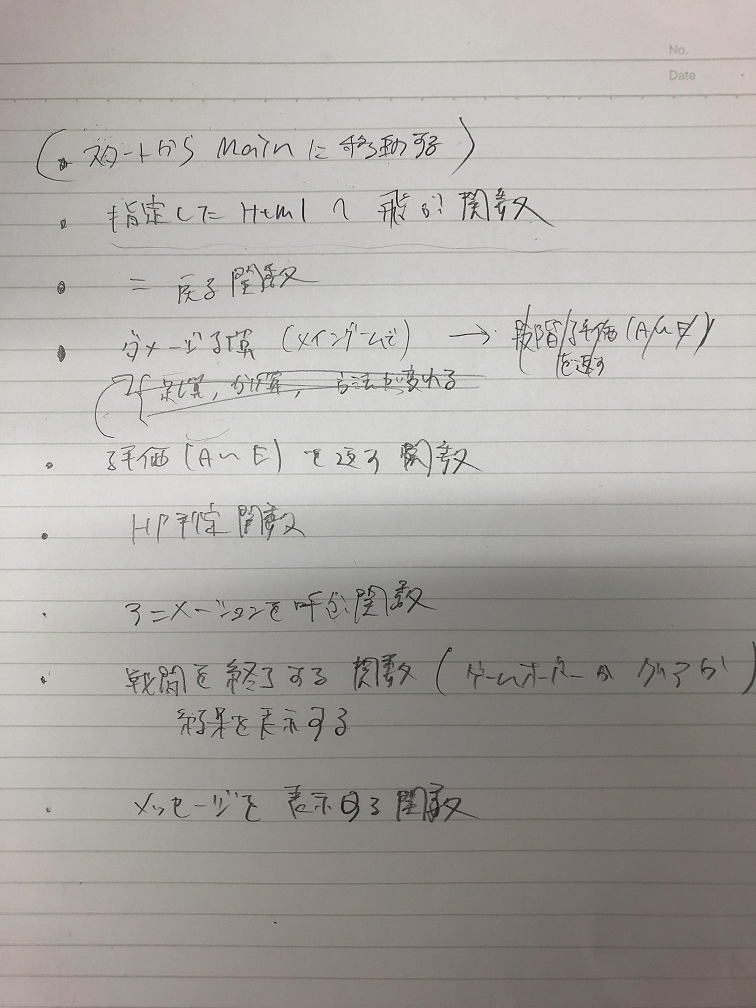 No.
Date
(・スタートから Mainに移動する)
・指定した Htmlへ 飛ぶ関数
・ 〃 戻る関数
・ダメージ計算 (メインゲームで) → 段階評価(A〜E)
を返す
足し算, 方法が変わる
・評価(A〜E)を返す 関数
・HP判定関数
・アニメーションを呼ぶ関数
・戦闘を終了する関数(ゲームオーバーか クリアか)
結果を表示する
・メッセージを 表示する関数